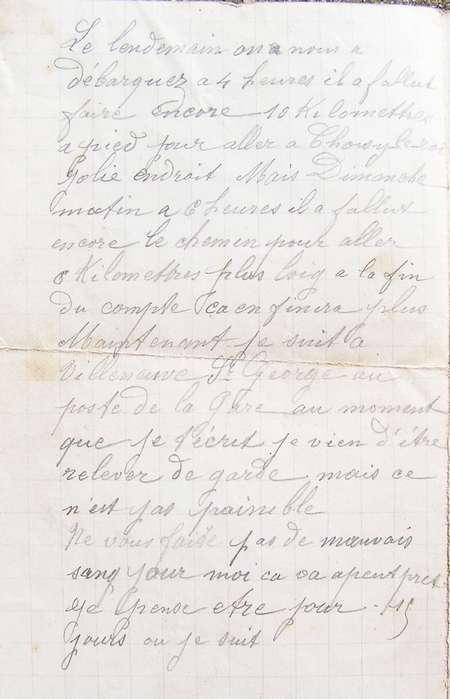 Le lendemain on nous a
débarquez a 4 heures il a fallut
faire encore 10 Kilomettres
a pied pour aller a Choisy le roi
Jolie endroit Mais Dimanche
matin a 6 heures il a fallut
encore le chemin pour aller
8 Kilomettres plus loig a la fin
du compte ca en finira plus
Maintenant je suit a
Villeneuve St George au
poste de la Gare au moment
que je t'écrit je vien d'être
relever de garde mais ce
n'est pas painible
Ne vous faite pas de mauvais
sang pour moi ca va apeut pret
Je pense etre pour 15
jours ou je suit